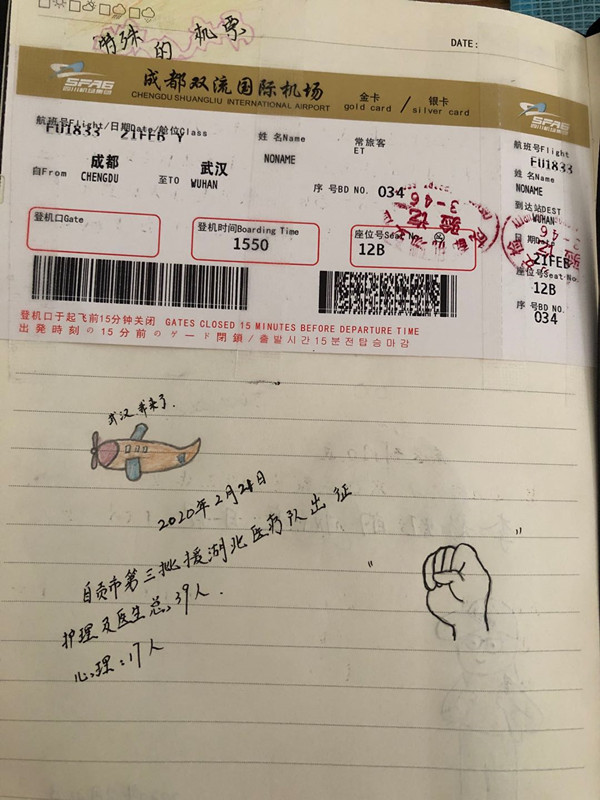 特殊的机票
DATE:
SFAG
四川机场集团
成都双流国际机场
CHENGDU SHUANGLIU INTERNATIONAL AIRPORT
金卡 / 银卡
gold card / silver card
SFAG
四川机场集团
航班号Flight/日期Date/舱位Class
FU1833 21FEB Y
姓 名Name
NONAME
常旅客
ET
成都 武汉
自From CHENGDU 至TO WUHAN
序 号BD NO. 034
登机口Gate
登机时间Boarding Time
1550
座位号Seat No.
12B
航班号Flight
FU1833
姓 名Name
NONAME
到达站DEST
WUHAN
日 期Date
21FEB
座位号Seat No.
12B
序 号BD NO.
034
验讫
3-46
3-46
登机口于起飞前15分钟关闭 GATES CLOSED 15 MINUTES BEFORE DEPARTURE TIME
出発時刻の15分前のゲード閉鎖/출발시간15분전탑승마감
武汉,我来了.
2020年2月21日
自贡市第三批援湖北医疗队出征
护理及医生总:39人.
心理:17人